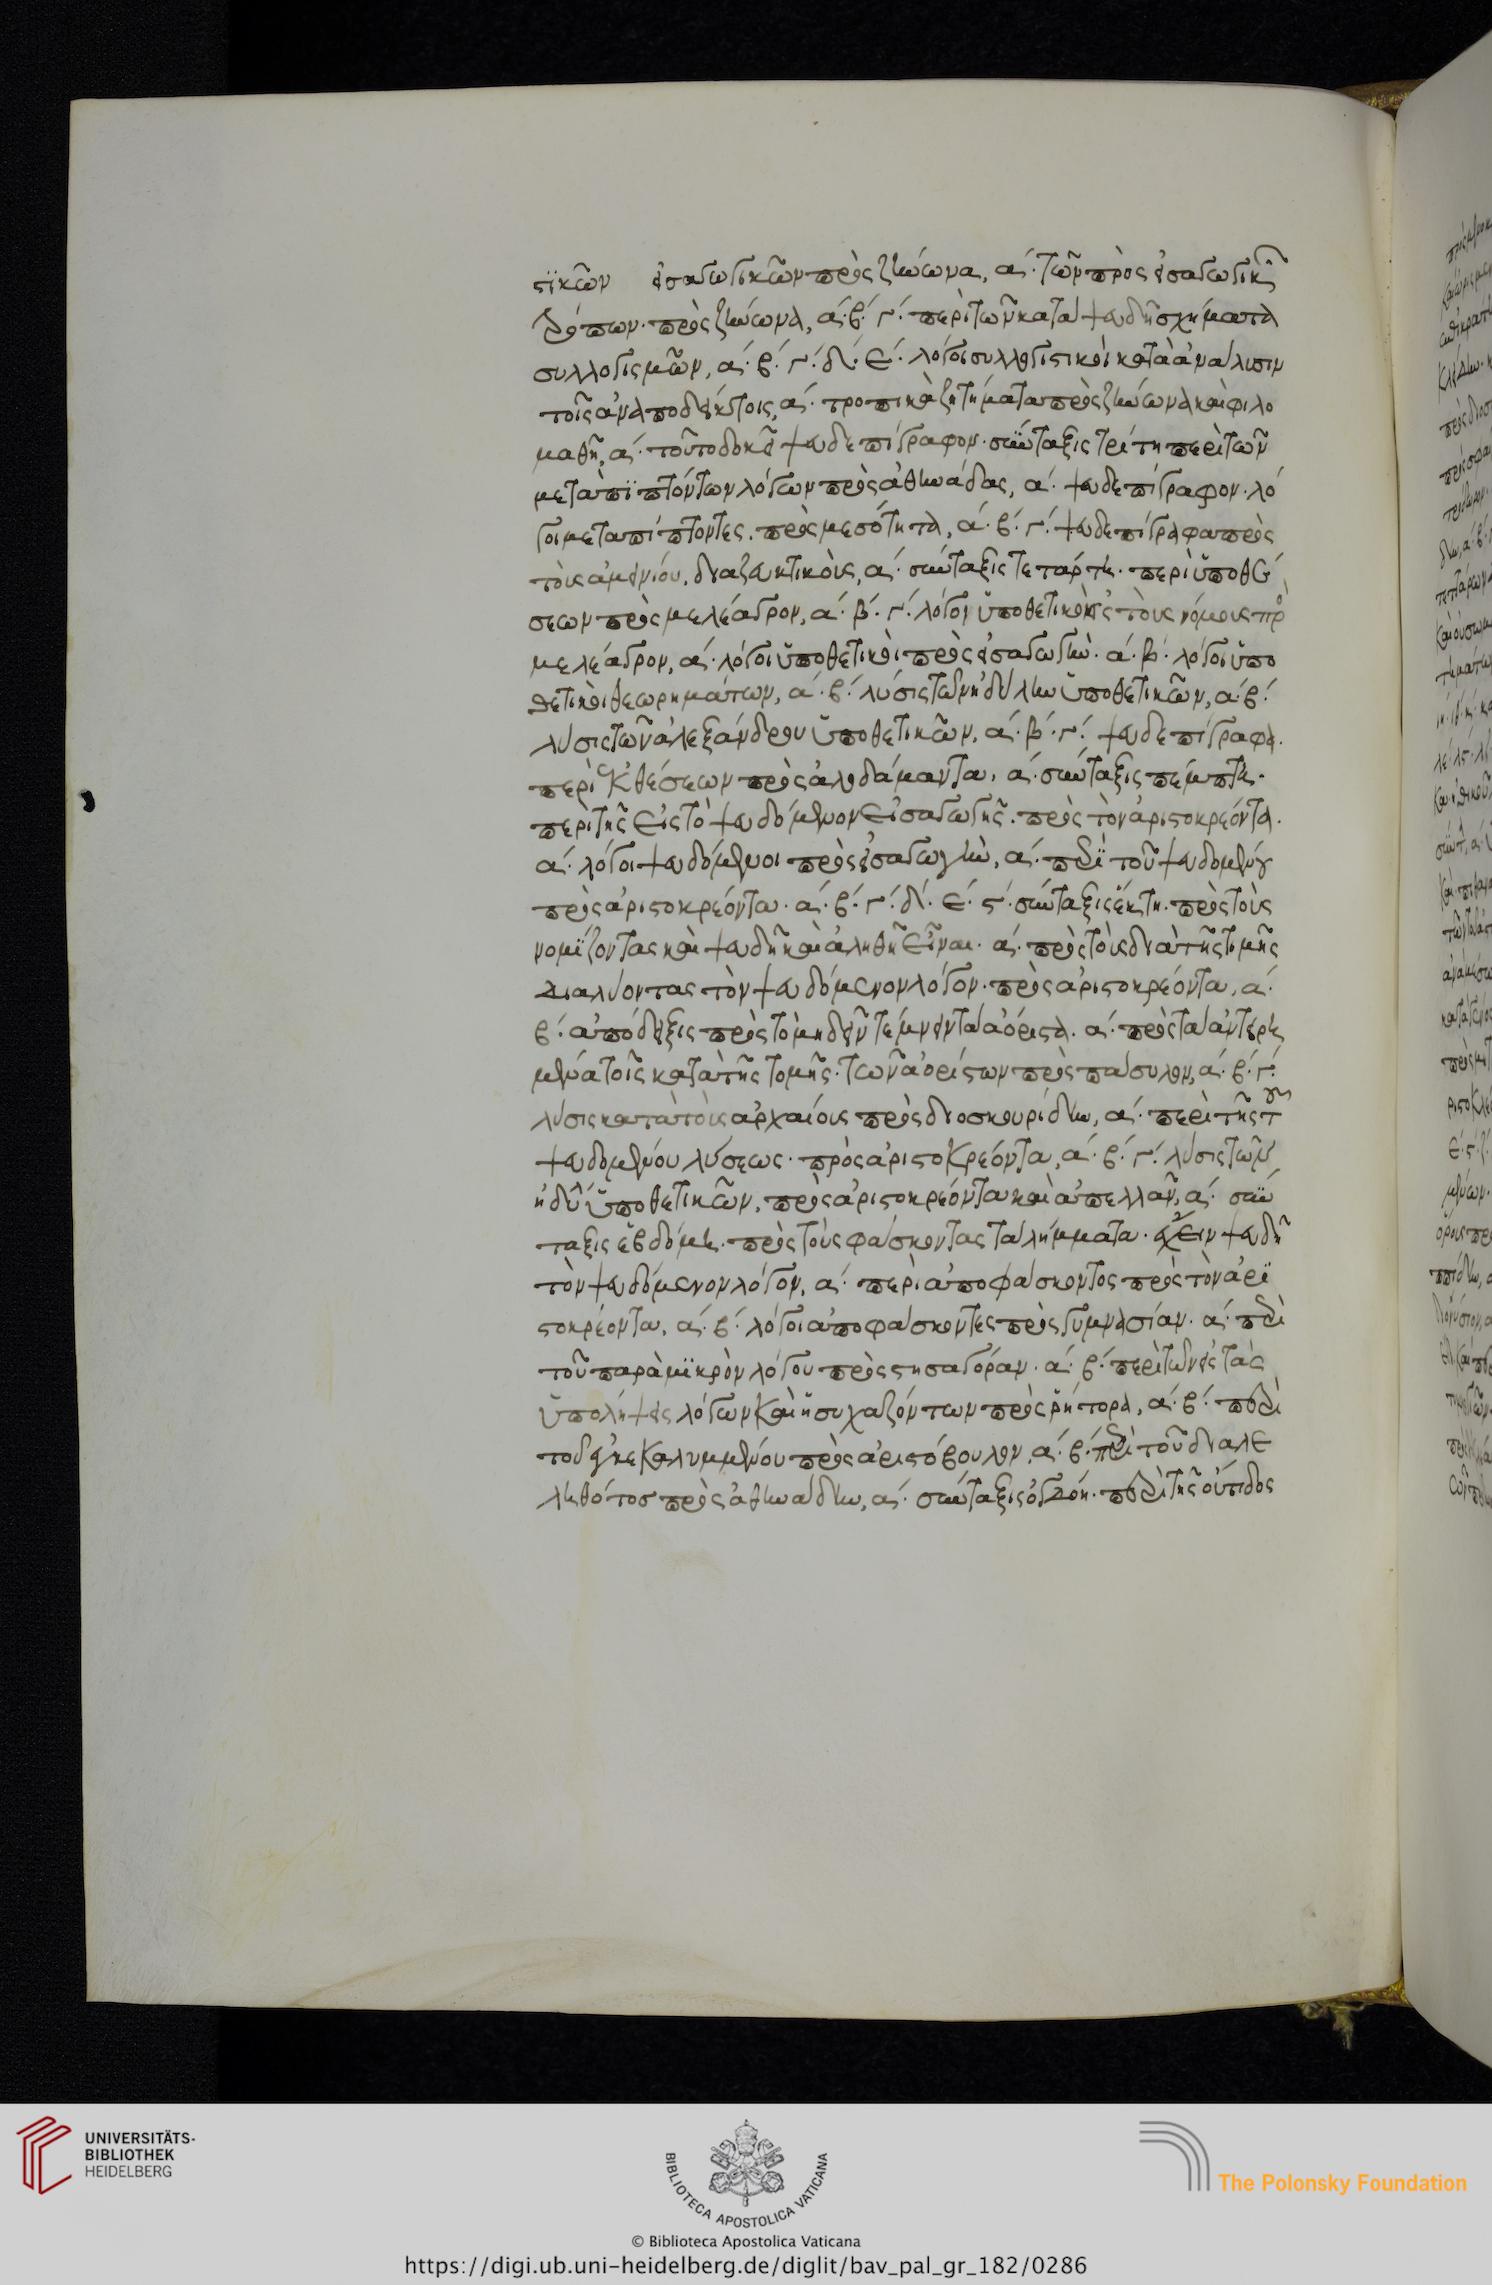 ϊκῶν εἰσαγωγικῶν πρὸς ζήνωνα, α´. τῶν πρὸς εἰσαγωγικ
τρόπων. πρὸς ζήνωνα, α´. β´. γ´. περὶ τῶν κατα ψευδῆ σχήματα
συλλογισμῶν, α´. β´. γ´. δ´. ε´. λόγοι συλλογιστικοὶ κατὰ ἀνάλισιν
τοῖς ἀναποδείκτοις, α´. τροπικὰ ζητήματα πρὸς ζήνωνα καὶ φιλο
μαθῆ, α´. τοῦτο δοκεῖ ψευδεπίγραφον. σύνταξις τρίτη περὶ τῶν
μεταπϊπτόντων λόγων πρὸς ἀθηνάδας, α´. ψευδεπίγραφον. λό
γοι μεταπίπτοντες. πρὸς μεσότητα, α´. β´. γ´. ψευδεπίγραφα πρὸς
τοὺς ἀμεινίου. διαζευκτικοὺς, α´. σύνταξις τετάρτη. περὶ ὑποθέ
σεων πρὸς μελέαγρον, α´. β´. γ´. λόγον ὑποθετικοὶ εἰς τοὺς νόμους πρὸ
μελέαγρον, α´. λόγοι ὑποθετικοὶ πρὸς εἰσαγωγὴν. α´. β´. λόγοι ὑπο
θετικοὶ θεωρημάτων, α´. β´. λύσις τῶν ἡδύλην ὑποθετικῶν, α´. β´.
λύσις τῶν ἀλεξάνδρου ὑποθετικῶν, α´. β´. γ´. ψευδεπίγραφα.
περὶ ἐκθέσεων πρὸς λαοδάμαντα, α´. σύνταξις πέμπτη.
περὶ τῆς εἰς τὸ ψευδόμενον εἰσαγωγῆς. πρὸς τὸν ἀριστοκρέοντα.
α´. λόγοι ψευδόμενοι πρὸς εἰσαγωγὴν, α´. περὶ τοῦ ψευδομένου
πρὸς ἀριστοκρέοντα. α´. β´. γ´. δ´. ε´. ς´. σύνταξις ἕκτη. πρὸς τοὺς
νομίζοντας καὶ ψευδῆ καὶ ἀληθῆ εἶναι. α´. πρὸς τοὺς διὰ τῆς τιμῆς
διαλύοντας τὸν ψευδόμενον λόγον. πρὸς ἀριστοκρέοντα, α´.
β´. ἀπόδειξις πρὸς τὸ μὴ δεῖν τέμνειν τὰ ἀόριστα. α´. πρὸς τὰ ἀντειρη
μένα τοῖς κατὰ τῆς τομῆς. τῶν ἀορίστων πρὸς πάσυλον, α´. β´. γ´.
λύσις κατὰ τοὺς ἀρχαίους πρὸς διοσκουρίδην, α´. περὶ τῆς τοῦ
ψευδομένου λύσεως. πρὸς ἀριστοκρέοντα, α´. β´. γ´. λύσις τῶν
ἡδύλ ὑποθετικῶν, πρὸς ἀριστοκρέοντα καὶ ἀπελλᾶν, α´. σύν
ταξις ἑβδόμη. πρὸς τοὺς φάσκοντας τὰ λήμματα. ἔχειν ψευδῆ
τὸν ψευδόμενον λόγον, α´. περὶ ἀποφάσκοντος πρὸς τὸν ἀρϊ
στοκρέοντα, α´. β´. λόγοι ἀποφάσκοντες πρὸς γυμνασίαν. α´. περὶ
τοῦ παρὰ μϊκρὸν λόγου πρὸς στησαγόραν. α´. β´. περὶ τῶν εἰς τὰς
ὑπολήψεις λόγων καὶ ἡσυχαζόντων πρὸς ῥήτορα, α´. β´. περὶ
τοῦ ἐγκεκαλυμμένου πρὸς ἀριστόβουλον, α´. β´. περὶ τοῦ διαλε
ληθότος πρὸς ἀθηνάδην, α´. σύνταξις ὀγδόη. περὶ τῆς οὔτιδος
UNIVERSITÄTS-
BIBLIOTHEK
HEIDELBERG
BIBLIOTECA APOSTOLICA VATICANA
The Polonsky Foundation
© Biblioteca Apostolica Vaticana
https://digi.ub.uni-heidelberg.de/diglit/bav_pal_gr_182/0286